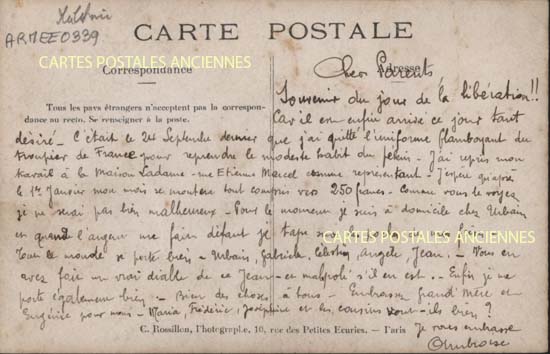 Militaria
ARMEE0339
CARTE POSTALE
CARTES POSTALES ANCIENNES
Correspondance
Adresse
Tous les pays étrangers n'acceptent pas la correspon-
dance au recto. Se renseigner à la poste.
Cher Parents
Souvenir du jour de la libération!!
Car il est enfin arrivé ce jour tant
désiré - C'était le 24 Septembre dernier que j'ai quitté l'uniforme flamboyant du
troupier de France pour reprendre le modeste habit du pékin - J'ai repris mon
travail à la Maison Ladame - rue Etienne Marcel comme représentant - J'espère qu'après
le 1er Janvier mon mois se montera tout compris vers 250 francs - Comme vous le voyez
je ne serai pas bien malheureux - Pour le moment je suis à domicile chez Urbain
et quand l'argent me fait défaut je tape
CARTES POSTALES ANCIENNES
Tout le monde se porte bien - Urbain, Gabriele, Célestin, Angèle, Jean. - Vous en
avez fait un vrai diable de ce Jean - et malpoli s'il en est. - Enfin je me
porte également bien - Bien des choses à tous - Embrassez grand'Mère et
Eugénie pour moi - Maria, Frédéric, Joséphine et les cousins vont-ils bien?
C. Rossillon, Photographe, 10, rue des Petites Ecuries. - Paris
Je vous embrasse
Ambroise